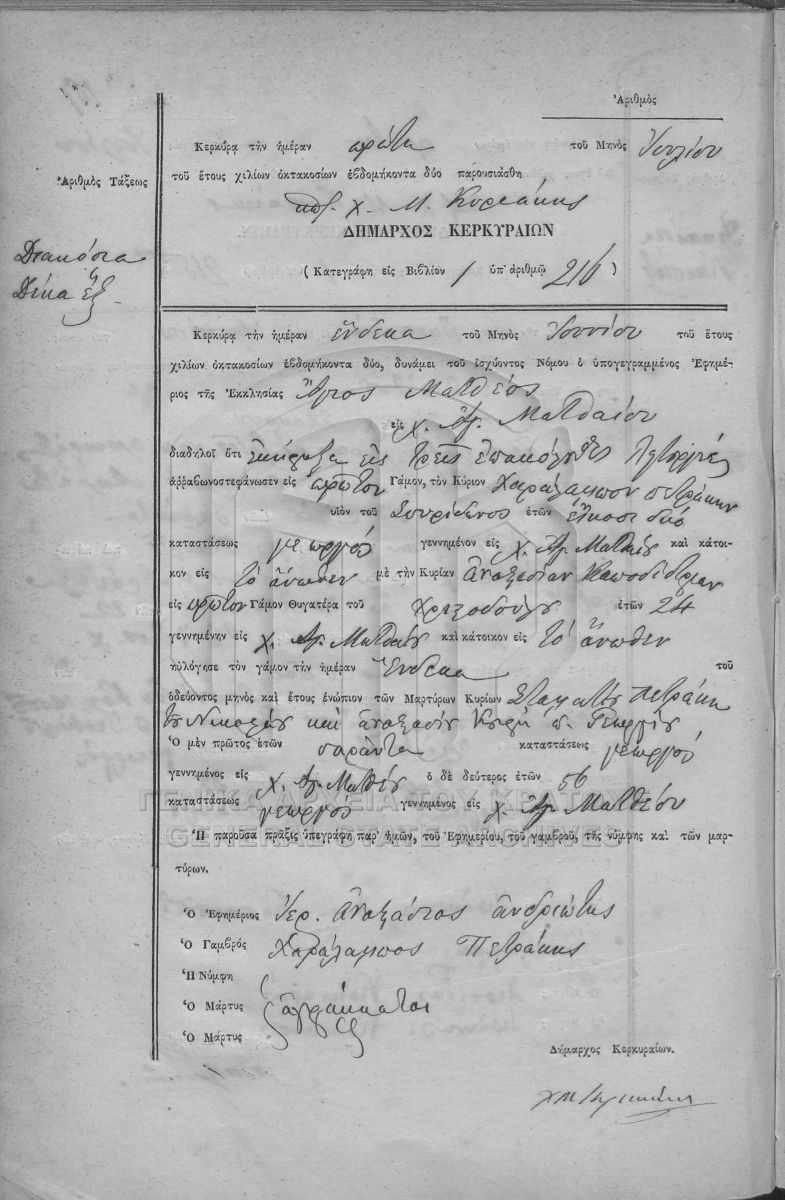 Ἀριθμὸς
Κερκύρᾳ τὴν ἡμέραν πρώτη τοῦ Μηνὸς Ἰουλίου
Ἀριθμὸς Τάξεως
τοῦ ἔτους χιλίων ὀκτακοσίων ἑβδομήκοντα δύο παρουσιάσθη
Χ. Μ. Κυριάκης
ΔΗΜΑΡΧΟΣ ΚΕΡΚΥΡΑΙΩΝ
Διακόσια
Δέκα ἕξ
( Κατεγράφη εἰς Βιβλίον 1 ὑπ' ἀριθμῷ 216 )
Κερκύρᾳ τὴν ἡμέραν ἕνδεκα τοῦ Μηνὸς Ἰουνίου τοῦ ἔτους
χιλίων ὀκτακοσίων ἑβδομήκοντα δύο, δυνάμει τοῦ ἰσχύοντος Νόμου ὁ ὑπογεγραμμένος Ἐφημέ-
ριος τῆς Ἐκκλησίας Ἅγιος Ματθέος
εἰς χ. Ἁγ. Ματθαίου
διαδηλοῖ ὅτι ἐκήρυξα εἰς τρεῖς
ἀῤῥαβωνοστεφάνωσεν εἰς πρῶτον Γάμον, τὸν Κύριον Χαράλαμπον Πετράκην
υἱὸν τοῦ Σπυρίδωνος ἐτῶν εἴκοσι δύο
καταστάσεως γεωργός γεννημένον εἰς χ. Ἁγ. Ματθέου καὶ κάτοι-
κον εἰς τὸ ἄνωθεν μὲ τὴν Κυρίαν Ἀναστασίαν Καποδίστριαν
εἰς πρῶτον Γάμον Θυγατέρα τοῦ Χριστοδούλου ἐτῶν 24
γεννημένην εἰς χ. Ἁγ. Ματθέου καὶ κάτοικον εἰς τὸ ἄνωθεν
ηὐλόγησε τὸν γάμον τὴν ἡμέραν Ἕνδεκα τοῦ
ὁδεύοντος μηνὸς καὶ ἔτους ἐνώπιον τῶν Μαρτύρων Κυρίων Σταμάτιου Πετράκη
τοῦ Νικολάου καὶ Ἀναστασίου π. Γεωργίου
Ὁ μὲν πρῶτος ἐτῶν σαράντα καταστάσεως γεωργός
γεννημένος εἰς χ. Ἁγ. Ματθέου ὁ δὲ δεύτερος ἐτῶν 56
καταστάσεως γεωργός γεννημένος εἰς χ. Ἁγ. Ματθέου
ΓΕΝΙΚΑ ΑΡΧΕΙΑ ΤΟΥ ΚΡΑΤΟΥΣ
GENERAL STATE ARCHIVES
Ἡ παροῦσα πρᾶξις ὑπεγράφη παρ' ἡμῶν, τοῦ Ἐφημερίου, τοῦ γαμβροῦ, τῆς νύμφης καὶ τῶν μαρ-
τύρων.
Ὁ Ἐφημέριος Ἱερ. Ἀναστάσιος Ἀνδριώτης
Ὁ Γαμβρός Χαράλαμπος Πετράκης
Ἡ Νύμφη
Ὁ Μάρτυς ἀγράμματοι
Ὁ Μάρτυς
Δήμαρχος Κερκυραίων.